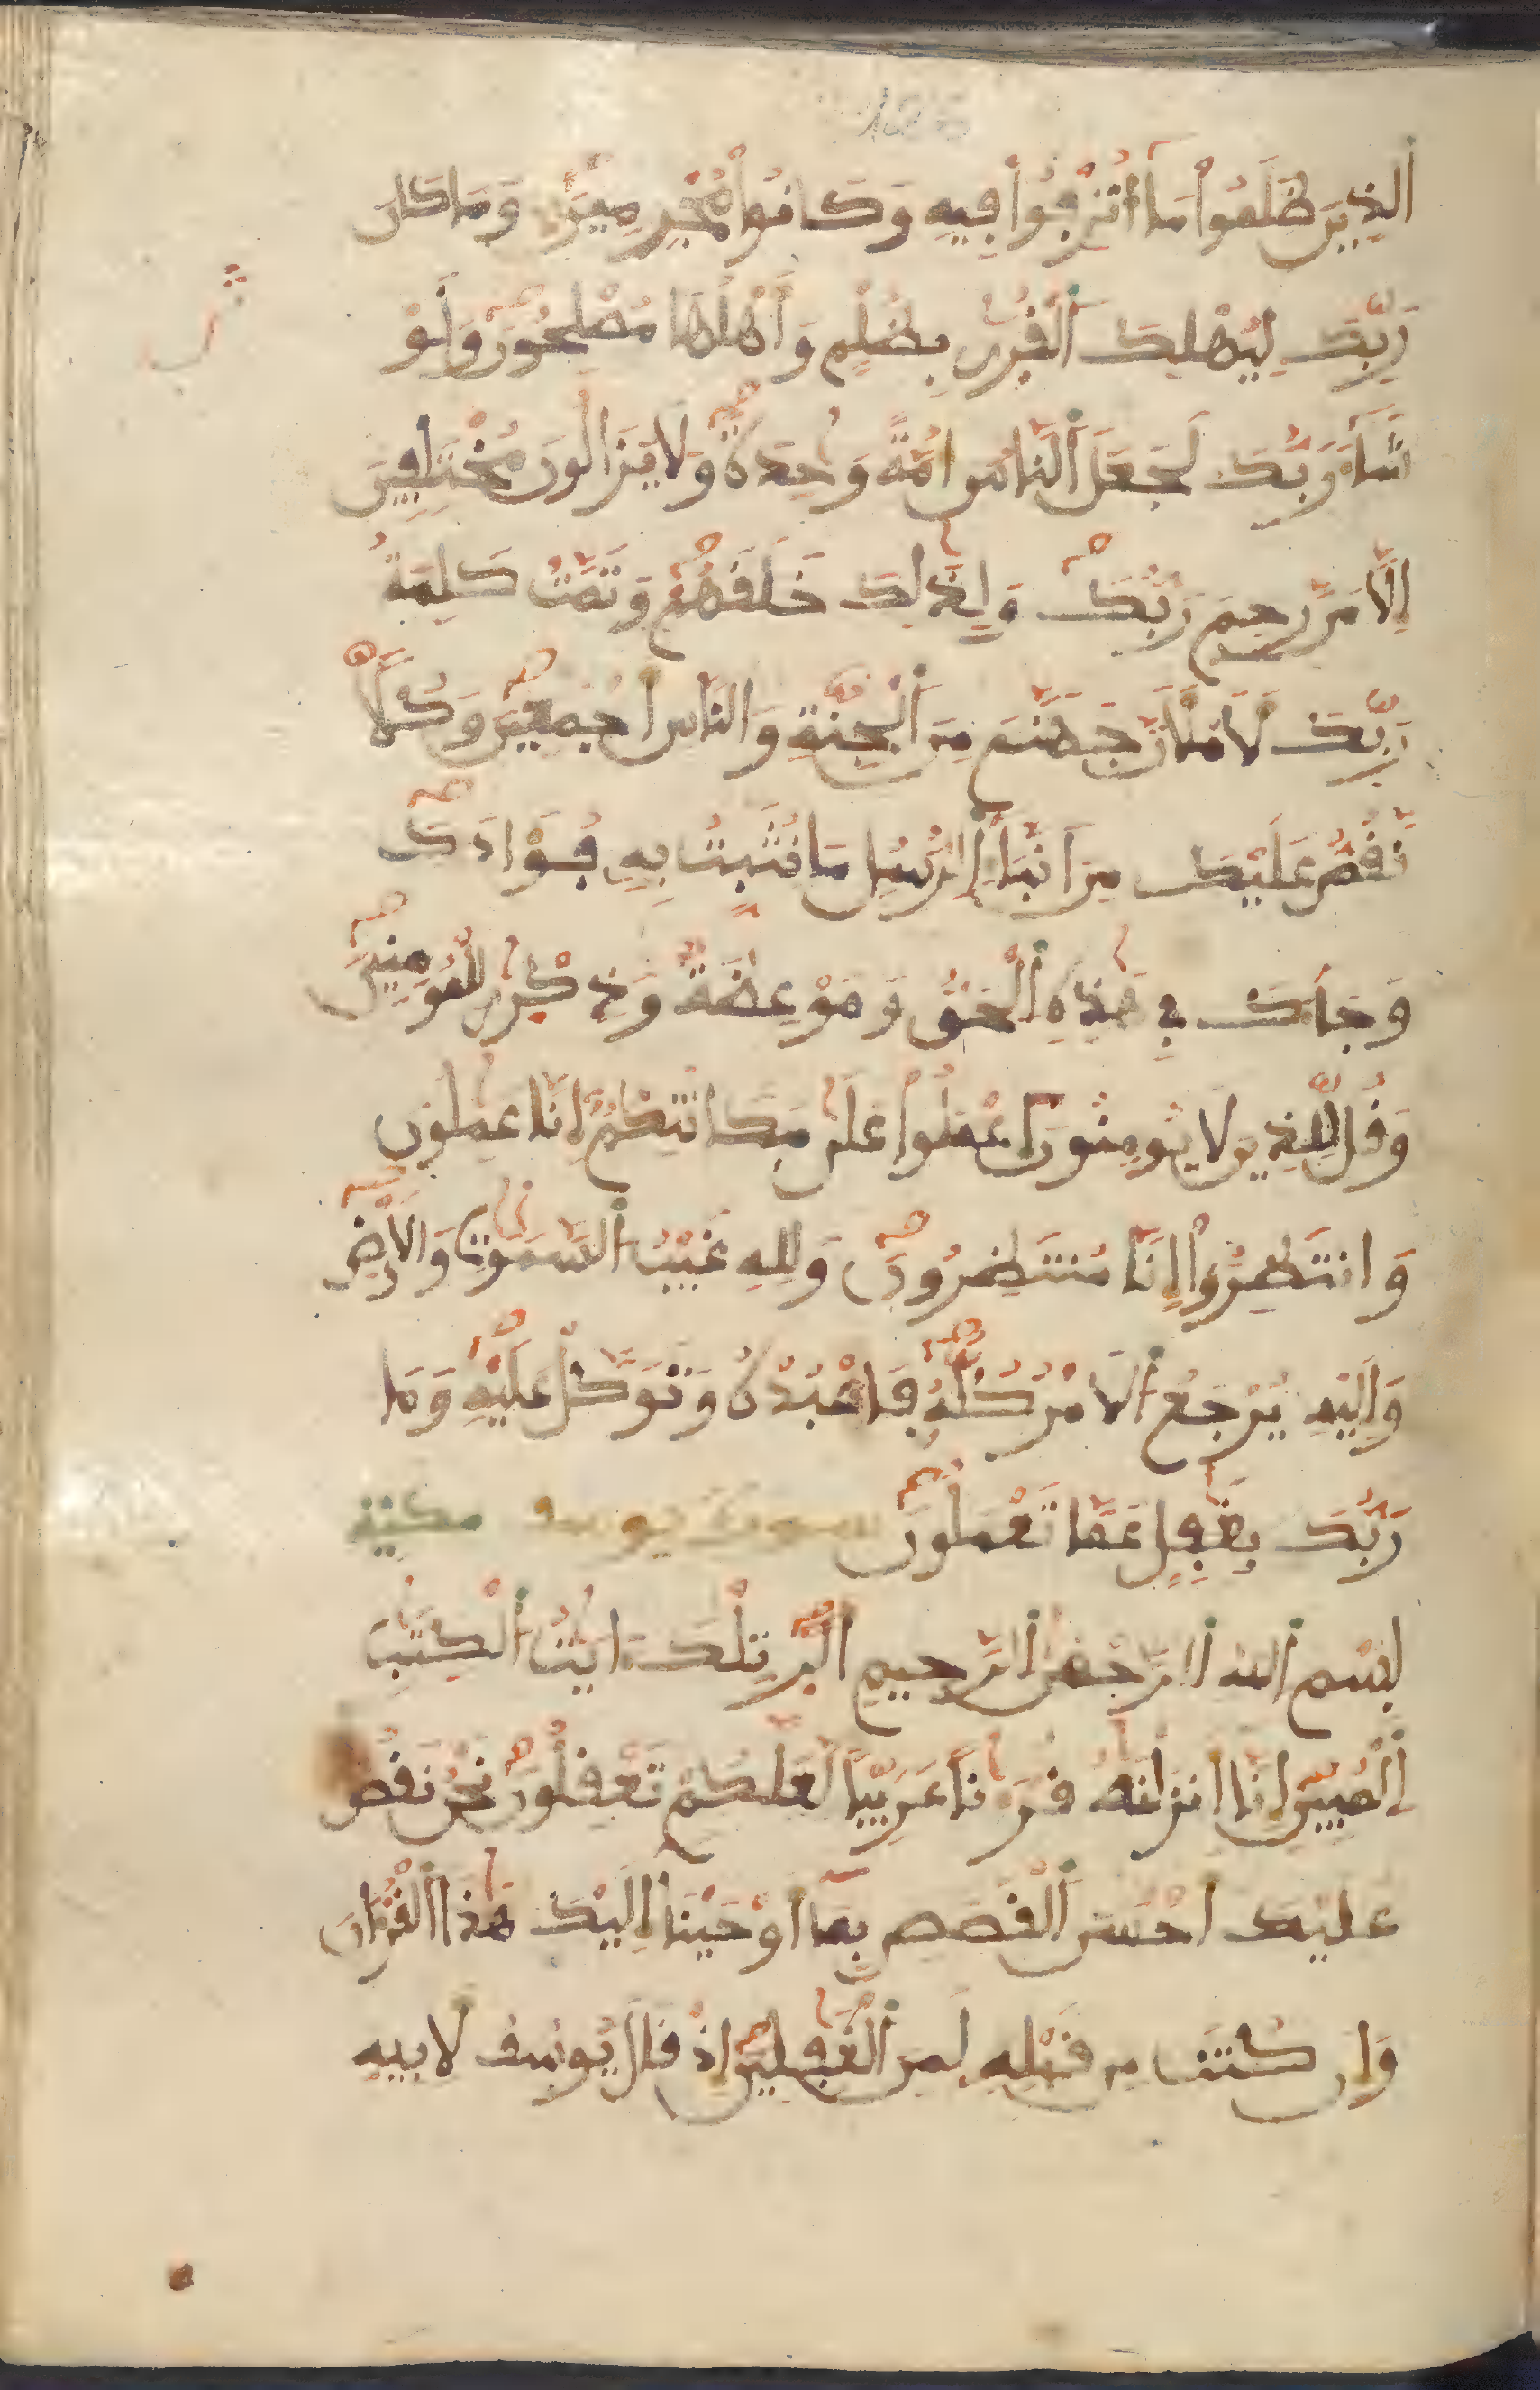 الذِينَ ظَلَمُواْ مَا أُتْرِفُواْ فِيهِ وَكَانُواْ مُجْرِمِينَ وَمَا كَانَ
رَبُّكَ لِيُهْلِكَ اَلْقُرَىٰ بِظُلْمٍ وَأَهْلُهَا مُصْلِحُونَ وَلَوْ
شَآءَ رَبُّكَ لَجَعَلَ اَلنَّاسَ أُمَّةً وَٰحِدَةً وَلَا يَزَالُونَ مُخْتَلِفِينَ
إِلَّا مَن رَّحِمَ رَبُّكَ وَلِذَٰلِكَ خَلَقَهُمْ وَتَمَّتْ كَلِمَةُ
رَبِّكَ لَأَمْلَأَنَّ جَهَنَّمَ مِنَ اَلْجِنَّةِ وَالنَّاسِ أَجْمَعِينَ وَكُلّاً
نَّقُصُّ عَلَيْكَ مِنَ انۢبَآءِ اِلرُّسُلِ مَا نُثَبِّتُ بِهِ فُؤَادَكَ
وَجَآءَكَ فِي هَٰذِهِ اِلْحَقُّ وَمَوْعِظَةٌ وَذِكْرَىٰ لِلْمُومِنِينَ
وَقُل لِّلذِينَ لَا يُومِنُونَ اَعْمَلُواْ عَلَىٰ مَكَانَتِكُمُ إِنَّا عَٰمِلُونَ
وَانتَظِرُواْ إِنَّا مُنتَظِرُونَ وَلِلهِ غَيْبُ اُلسَّمَٰوَٰتِ وَالْأَرْضِ
وَإِلَيْهِ يَرْجِعُ اُلْأَمْرُ كُلُّهُ فَاعْبُدْهُ وَتَوَكَّلْ عَلَيْهِ وَمَا
رَبُّكَ بِغَٰفِلٍ عَمَّا تَعْمَلُونَ سورة يوسف مكية
بِسْمِ اِللهِ اِلرَّحْمَٰنِ اِلرَّحِيمِ الٓرٰ تِلْكَ ءَايَٰتُ اُلْكِتَٰبِ
اِلْمُبِينِ إِنَّا أَنزَلْنَٰهُ قُرْءَٰناً عَرَبِيّاً لَعَلَّكُمْ تَعْقِلُونَ نَحْنُ نَقُصُّ
عَلَيْكَ أَحْسَنَ اَلْقَصَصِ بِمَا أَوْحَيْنَا إِلَيْكَ هَٰذَا اَلْقُرْءَانَ
وَإِن كُنتَ مِن قَبْلِهِ لَمِنَ اَلْغَٰفِلِينَ إِذْ قَالَ يُوسُفُ لِأَبِيهِ